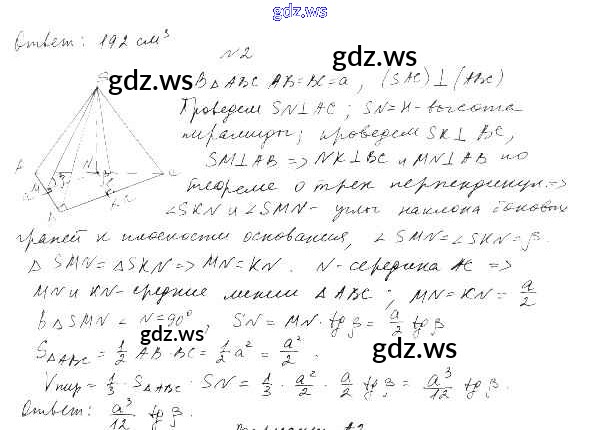 gdz.ws
Ответ: 192 см³
N2
gdz.ws gdz.ws
В △ABC AB=BC=a, (SAC)⊥(ABC)
Проведем SN⊥AC; SN=H-высота
пирамиды; проведем SK⊥BC,
SM⊥AB => NK⊥BC и MN⊥AB по
теореме о трех перпендикул. =>
∠SKN и ∠SMN - углы наклона боковых
граней к плоскости основания, ∠SMN=∠SKN=β.
△SMN=△SKN => MN=KN. N-середина AC =>
MN и KN-средние линии △ABC; MN=KN=a/2
В △SMN ∠N=90°, SN=MN·tgβ=a/2 tgβ
gdz.ws gdz.ws
S△ABC=1/2 AB·BC=1/2 a²=a²/2.
Vпир=1/3·S△ABC·SN=1/3·a²/2·a/2 tgβ=a³/12 tgβ.
Ответ: a³/12 tgβ.